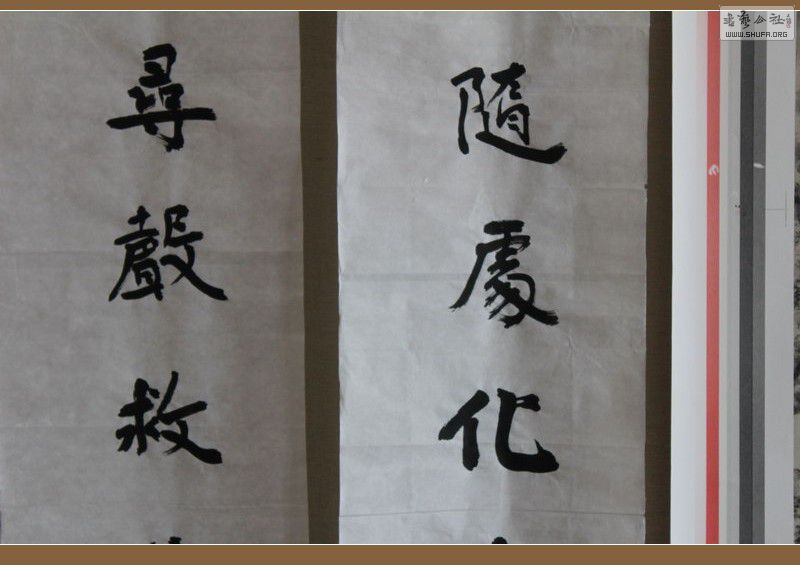 隨處化
尋聲救
書藝公社
WWW.SHUFA.ORG